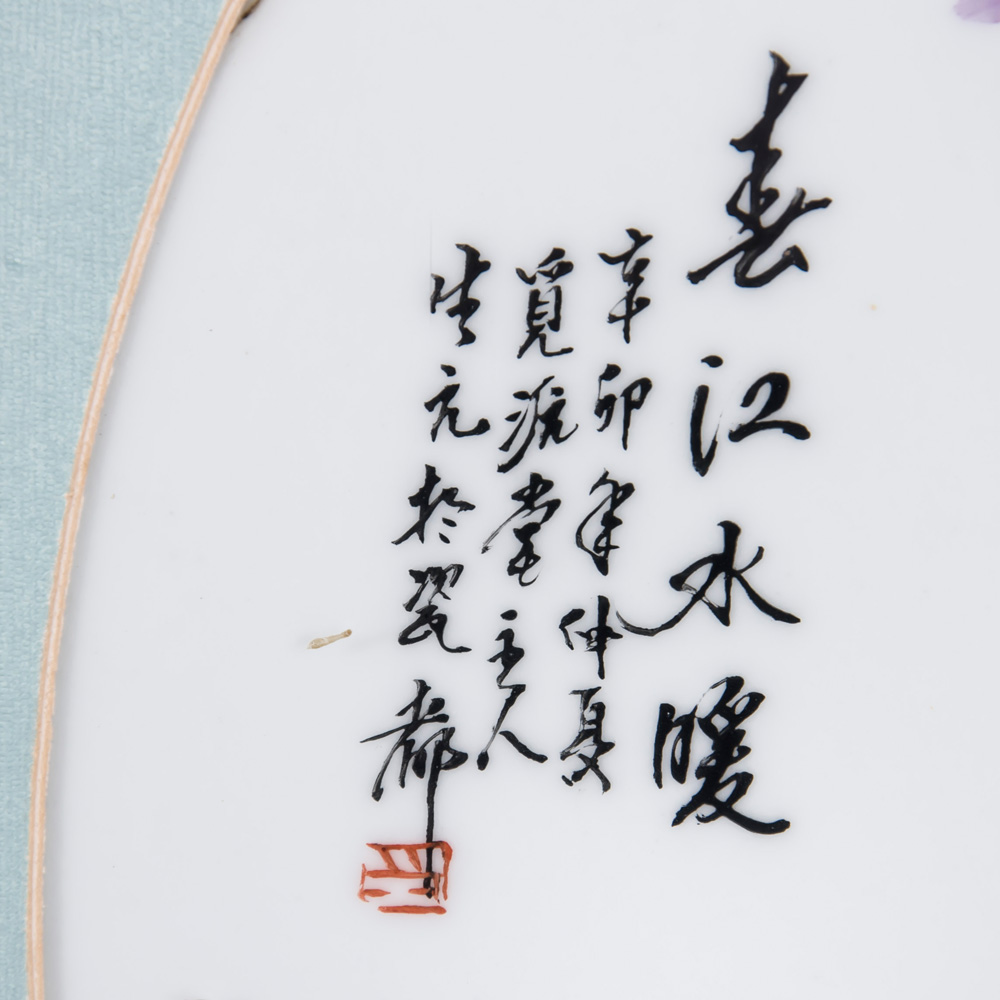 春江水暖
辛卯年仲夏
覓源堂主人
生元於瓷都